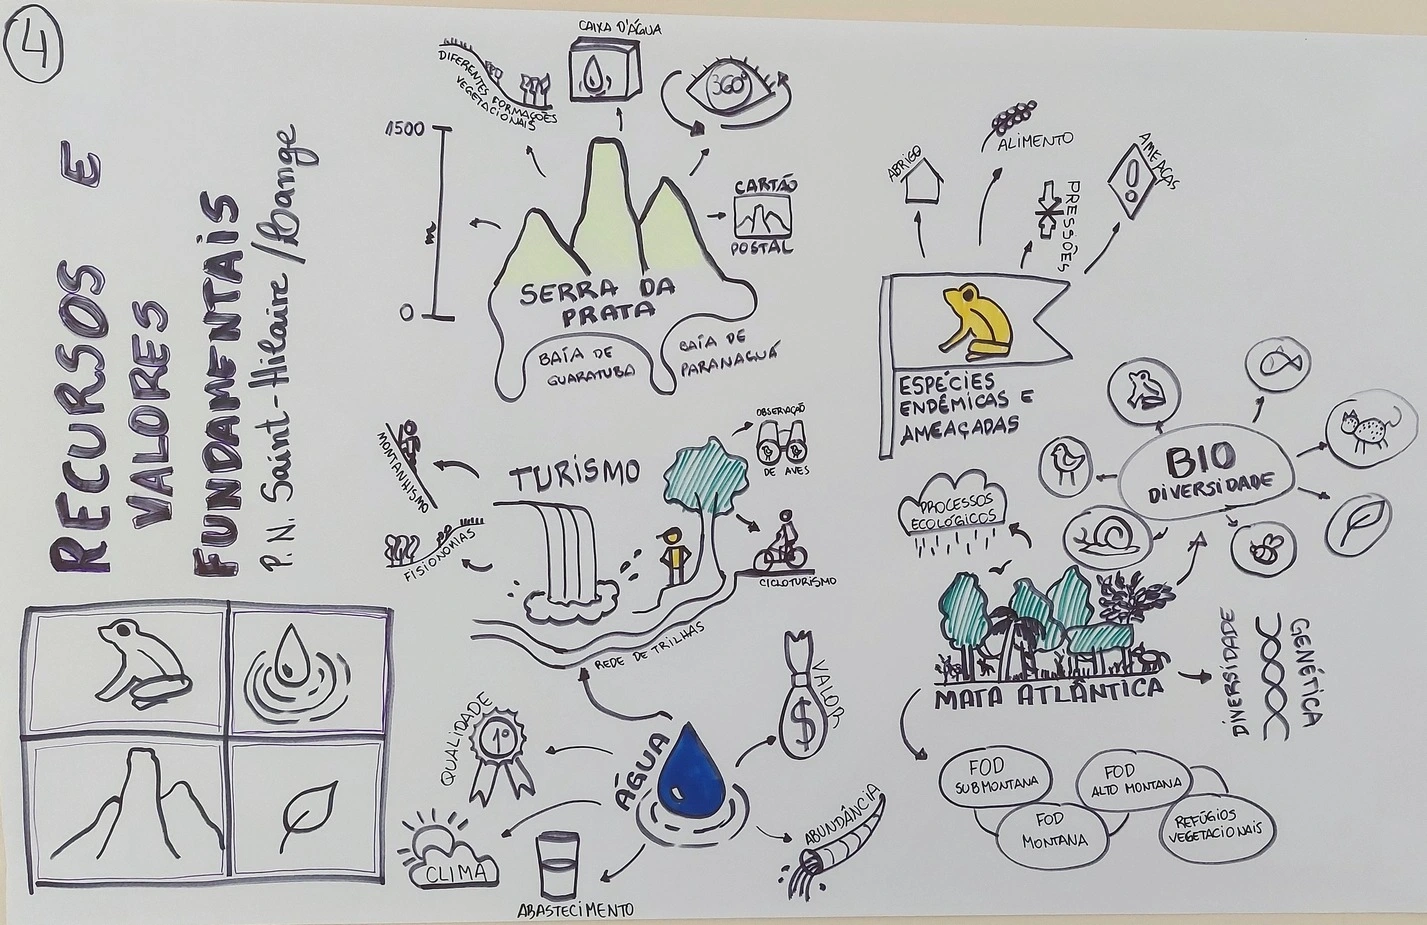 4
RECURSOS E
VALORES
FUNDAMENTAIS
P.N. Saint-Hilaire/Lange
DIFERENTES FORMAÇÕES
VEGETACIONAIS
CAIXA D'ÁGUA
360º
1500
m
0
CARTÃO
POSTAL
SERRA DA
PRATA
BAÍA DE
GUARATUBA
BAÍA DE
PARANAGUÁ
ABRIGO
ALIMENTO
PRESSÕES
AMEAÇAS
ESPÉCIES
ENDÊMICAS E
AMEAÇADAS
MONTANHISMO
TURISMO
OBSERVAÇÃO
DE AVES
FISIONOMIAS
CICLOTURISMO
REDE DE TRILHAS
PROCESSOS
ECOLÓGICOS
BIO
DIVERSIDADE
MATA ATLÂNTICA
DIVERSIDADE
GENÉTICA
QUALIDADE
1º
ÁGUA
VALOR
$
CLIMA
ABASTECIMENTO
ABUNDÂNCIA
FOD
SUBMONTANA
FOD
MONTANA
FOD
ALTO MONTANA
REFÚGIOS
VEGETACIONAIS